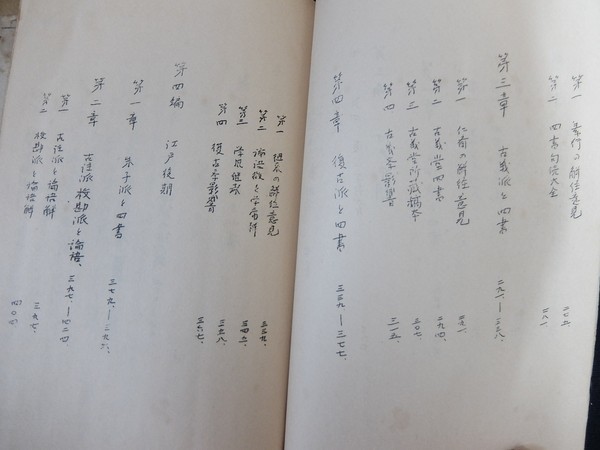 第一 素行の解経意見 二七五
第二 四書句読大全 二八一
第三章 古義派と四書 二九一—三三八
第一 仁斎の解経意見 二九一
第二 古義堂四書 二九四
第三 古義堂所蔵稿本 三〇七
第四 古義学影響 三一五
第四章 復古派と四書 三三九—三七七
第一 徂徠の解経意見 三三九
第二 論語徴と学庸解 三四五
第三 学風継承 三五八
第四 復古学影響 三六七
第四編 江戸後期
第一章 朱子派と四書 三七九—三九六
第二章 古注派校勘派と論語 三九七—四二四
第一 古注派と論語解 三九七
第二 校勘派と論語解 四〇五